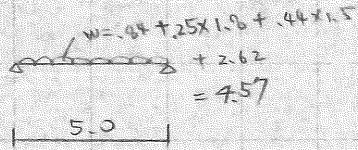 w=.84 +.25×1.8 + .44×1.5
+ 2.62
= 4.57
5.0